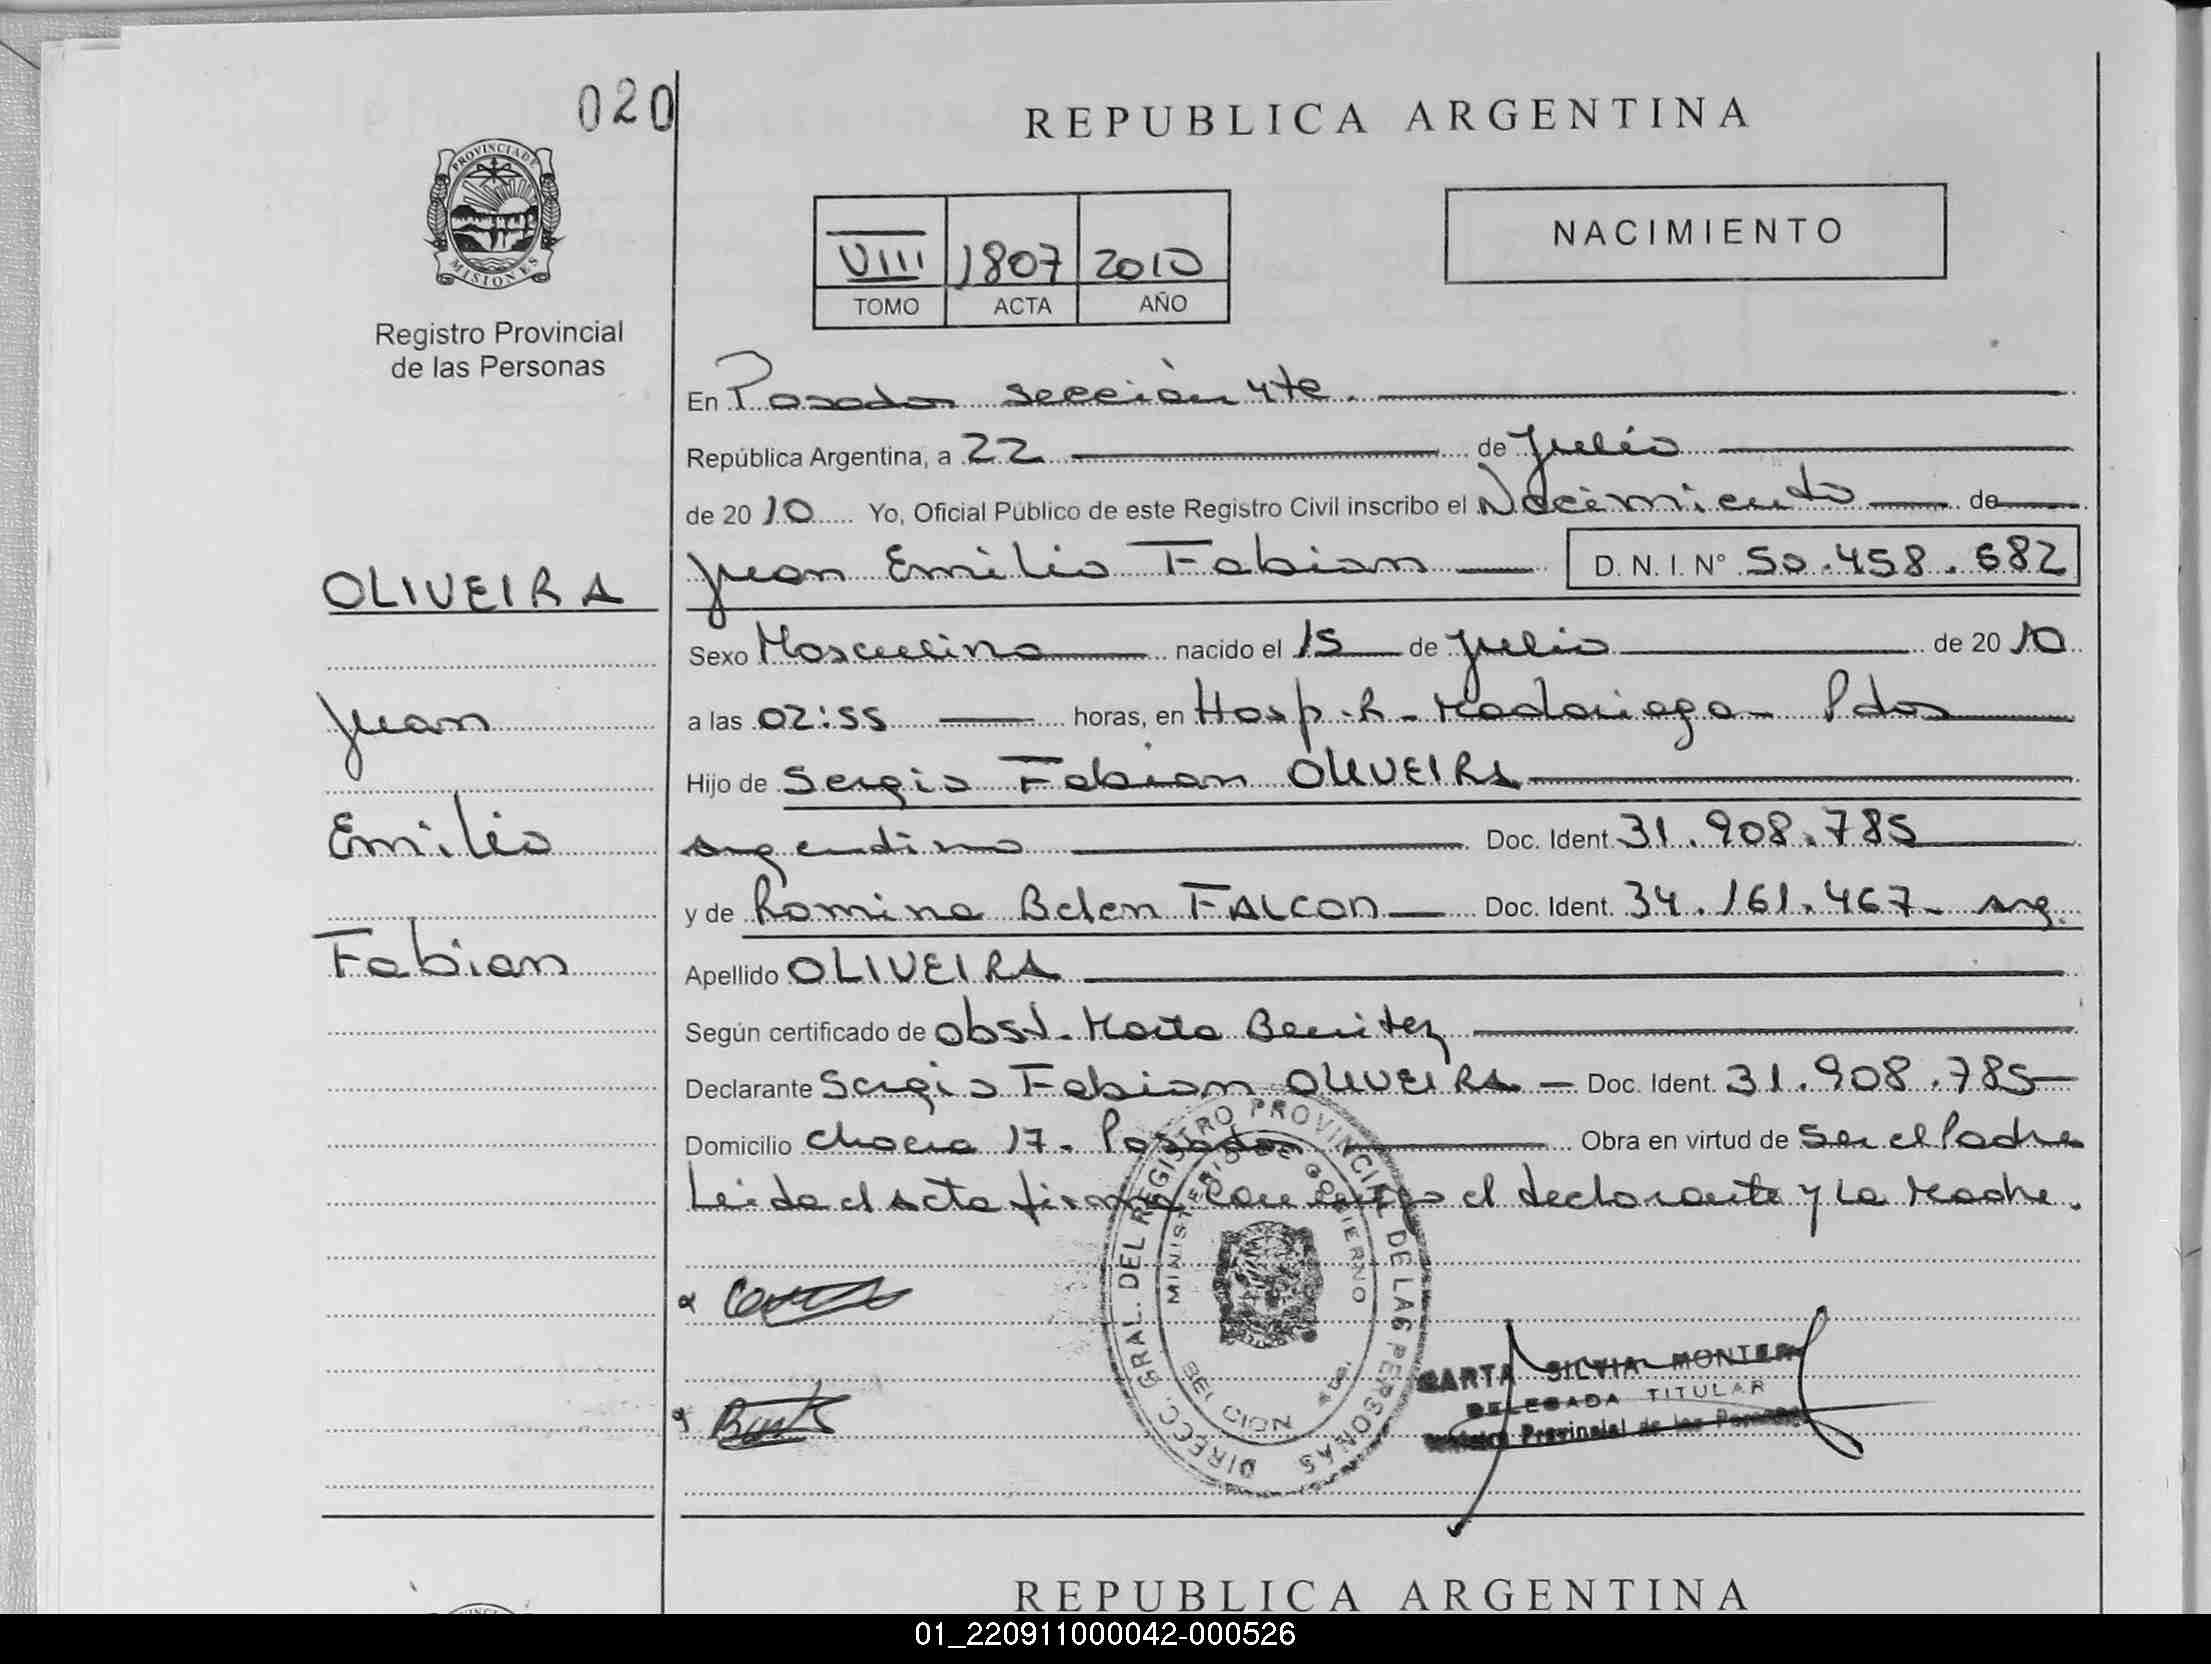 020
REPUBLICA ARGENTINA
PROVINCIA DE
MISIONES
Registro Provincial
de las Personas
VIII 1807 2010
TOMO ACTA AÑO
NACIMIENTO
En Posadas sección 4ta.
República Argentina, a 22 de Julio
de 2010 Yo, Oficial Público de este Registro Civil inscribo el Nacimiento de
Juan Emilio Fabian D. N. I. N° 50.458.682
Sexo Masculino nacido el 15 de Julio de 2010
a las 02:55 horas, en Hosp. R. Madariaga - Pdas
Hijo de Sergio Fabian OLIVEIRA
argentino Doc. Ident. 31.908.785
y de Romina Belen FALCON Doc. Ident. 34.161.467 - arg.
Apellido OLIVEIRA
Según certificado de obst. Marta Benitez
Declarante Sergio Fabian OLIVEIRA Doc. Ident. 31.908.785
Domicilio chacra 17 - Posadas Obra en virtud de Ser el Padre
Leida el Acta firma conmigo el declarante y La Madre.
OLIVEIRA
Juan
Emilio
Fabian
DIRECC. GRAL. DEL REGISTRO PROVINCIAL DE LAS PERSONAS
MINISTERIO DE GOBIERNO
SILVIA MONTER
DELEGADA TITULAR
Provincial de las Personas
REPUBLICA ARGENTINA
01_220911000042-000526